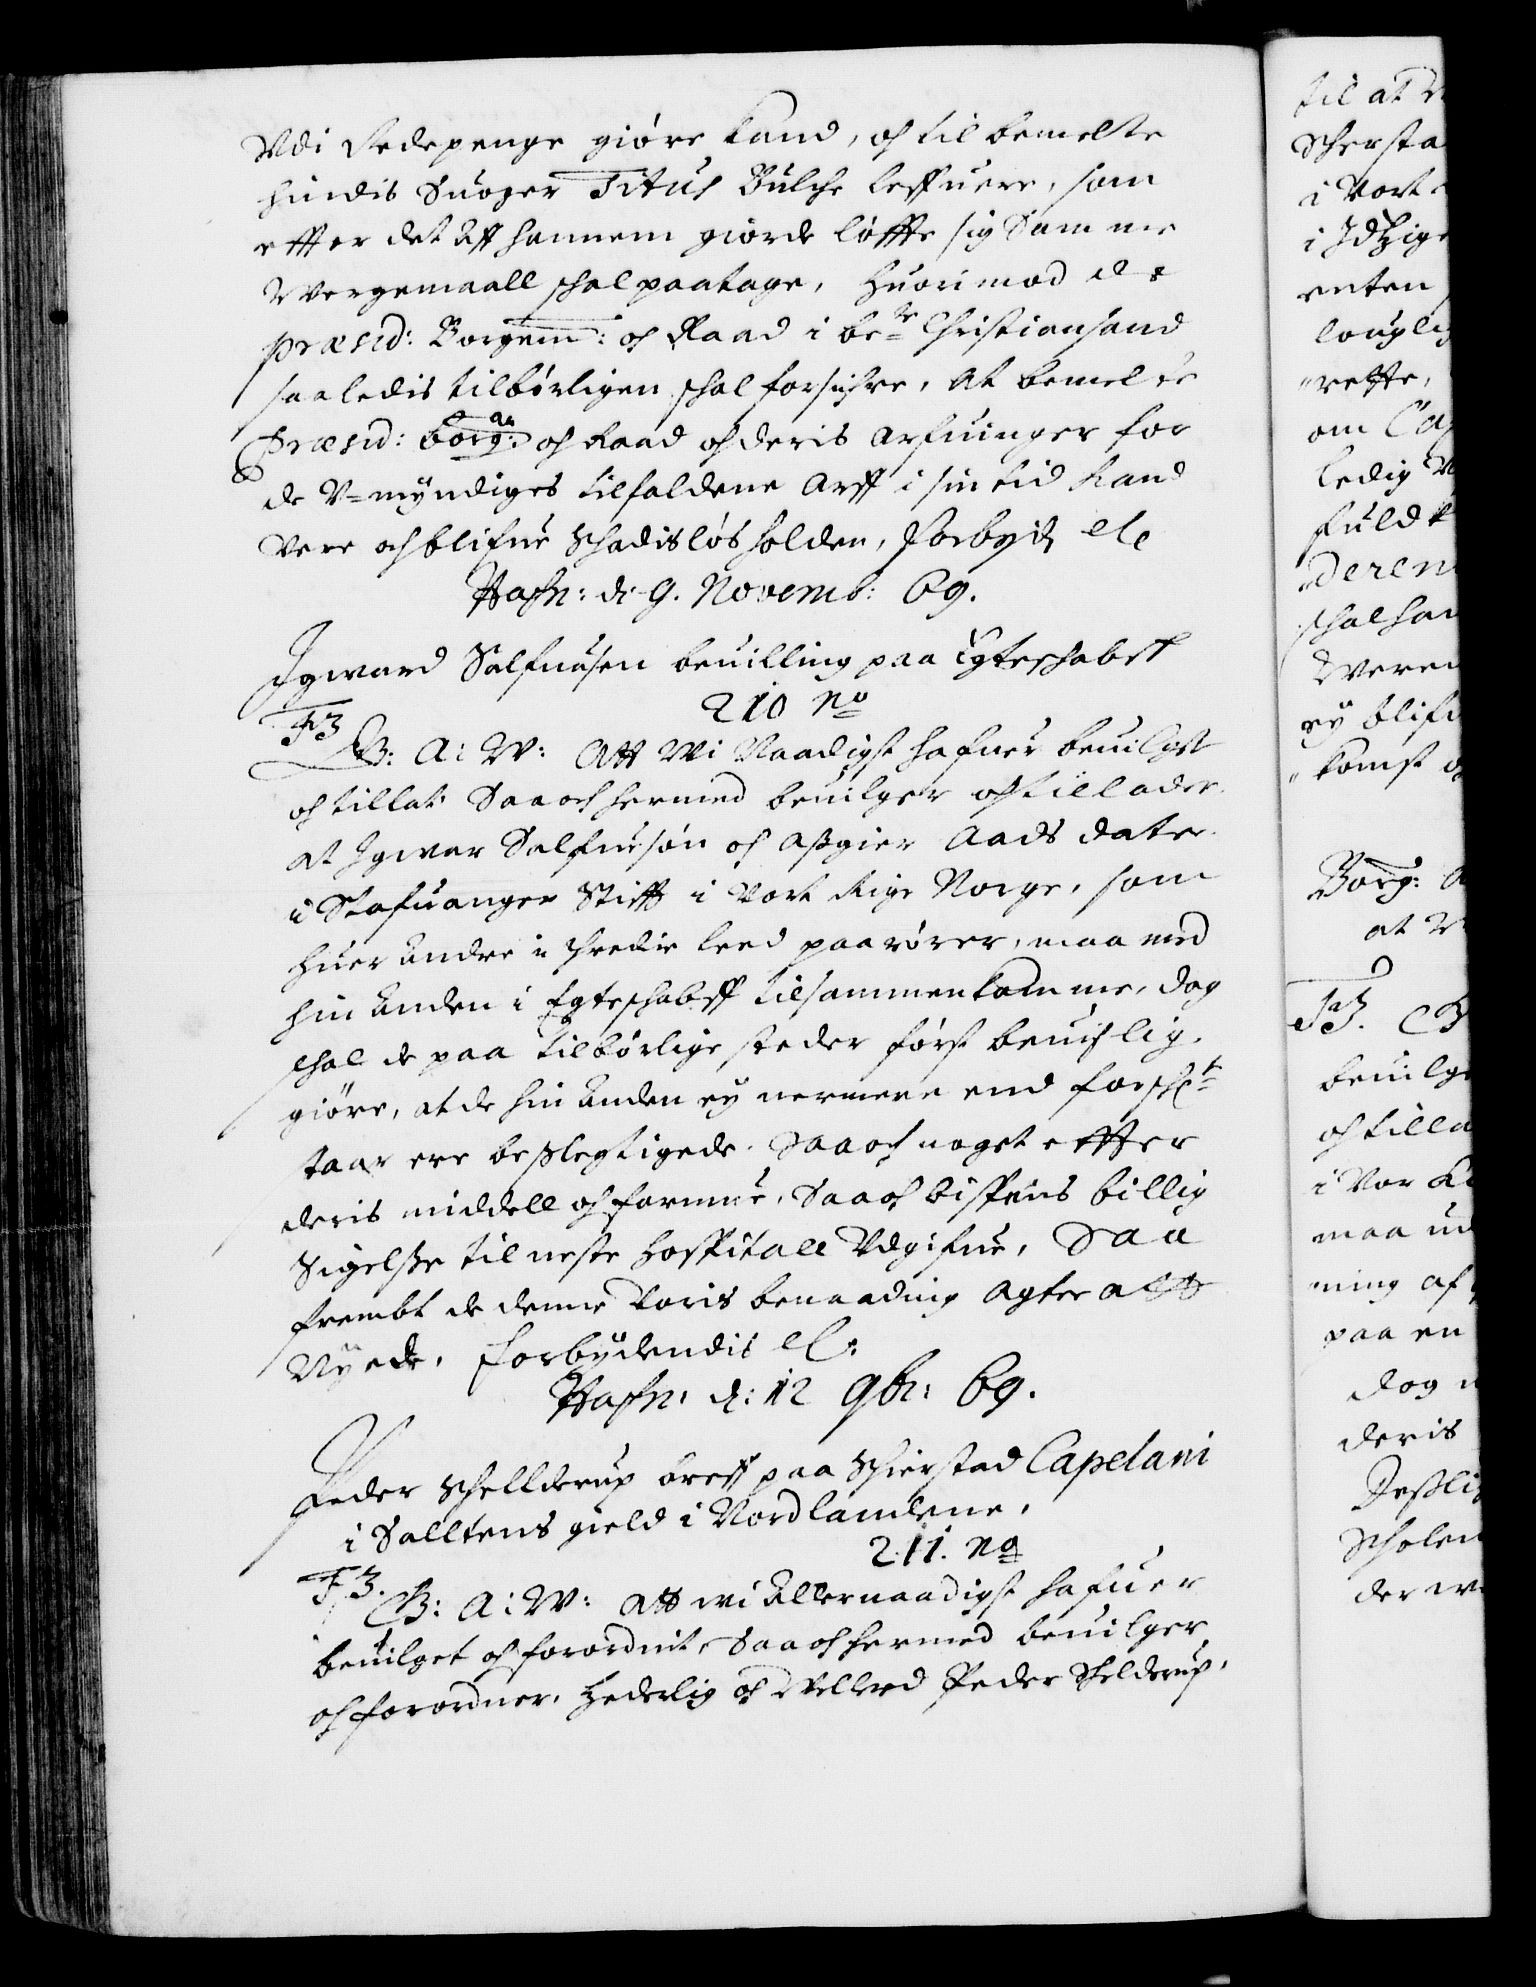 Vdi Redepenge giøre kand, och til bemelte
hindis Suoger Titus Bulche leffuere, som
effter det Aff hannem giorde løffte sig Samme
Wergemaall schal paatage, Huorimod
Præsid: Borgem: och Raad i be:te Christiansand
saaledis tilbørligen schal forsichre, At bemelte
Præsid: Borg: och Raad och deris Arfuinger for
de V=myndiges tilfaldene Arff i sin tid kand
Vere och blifue Schadisløs holden, Forbyd: etc
Haffn: d: 9. Novemb: 69.
Ingward Salfuesen beuilling paa Egteschabet
210 No
F3
G: A: W: Att Wi Naadigst hafuer beuilget
och tillat Saa och hermed beuilger och tillader
at Ingwar Salfuesøn och Aszgier Aads dater
i Stafuanger Stifft i Vort Rige Norge, som
huer Andre i tredie leed paarører, maa med
hin Anden i Egteschabeff tilsammenkomme, dog
schal de paa tilbørlige steder først beuislig-
giøre, at de hin Anden ey nermere end forsch:t
staar ere beslegtigede. Saa och noget effter
deris middell och formue, Saa och bispens billig
Sigelsze til neste Hospitall Vdgifue, Saa
frembt de denne voris benaading Agter att
Nyede. Forbydendis etc:
Haffn: d: 12 9br: 69.
Peder Schellderup breff paa Schierstad Capelani
i Salltens gield i Nordlandene.
211. No
F3.
G: A: W: Att wi Allernaadigst hafuer
beuilget och forordnit, Saa och hermed beuilger
och forordner, Hederlig och Wellerd Peder Schelderup,
til at
Schersta
i Vort
i Idtzige
enten
louglig
rette,
om Cap
ledig
fuldk
deren
schal han
Weren
ey blifu
komst
Borg:
at
F3. G
beuilge
och tilla
i Vor
maa
ning af
paa en
dog
deris
Deszli
Scholen
der